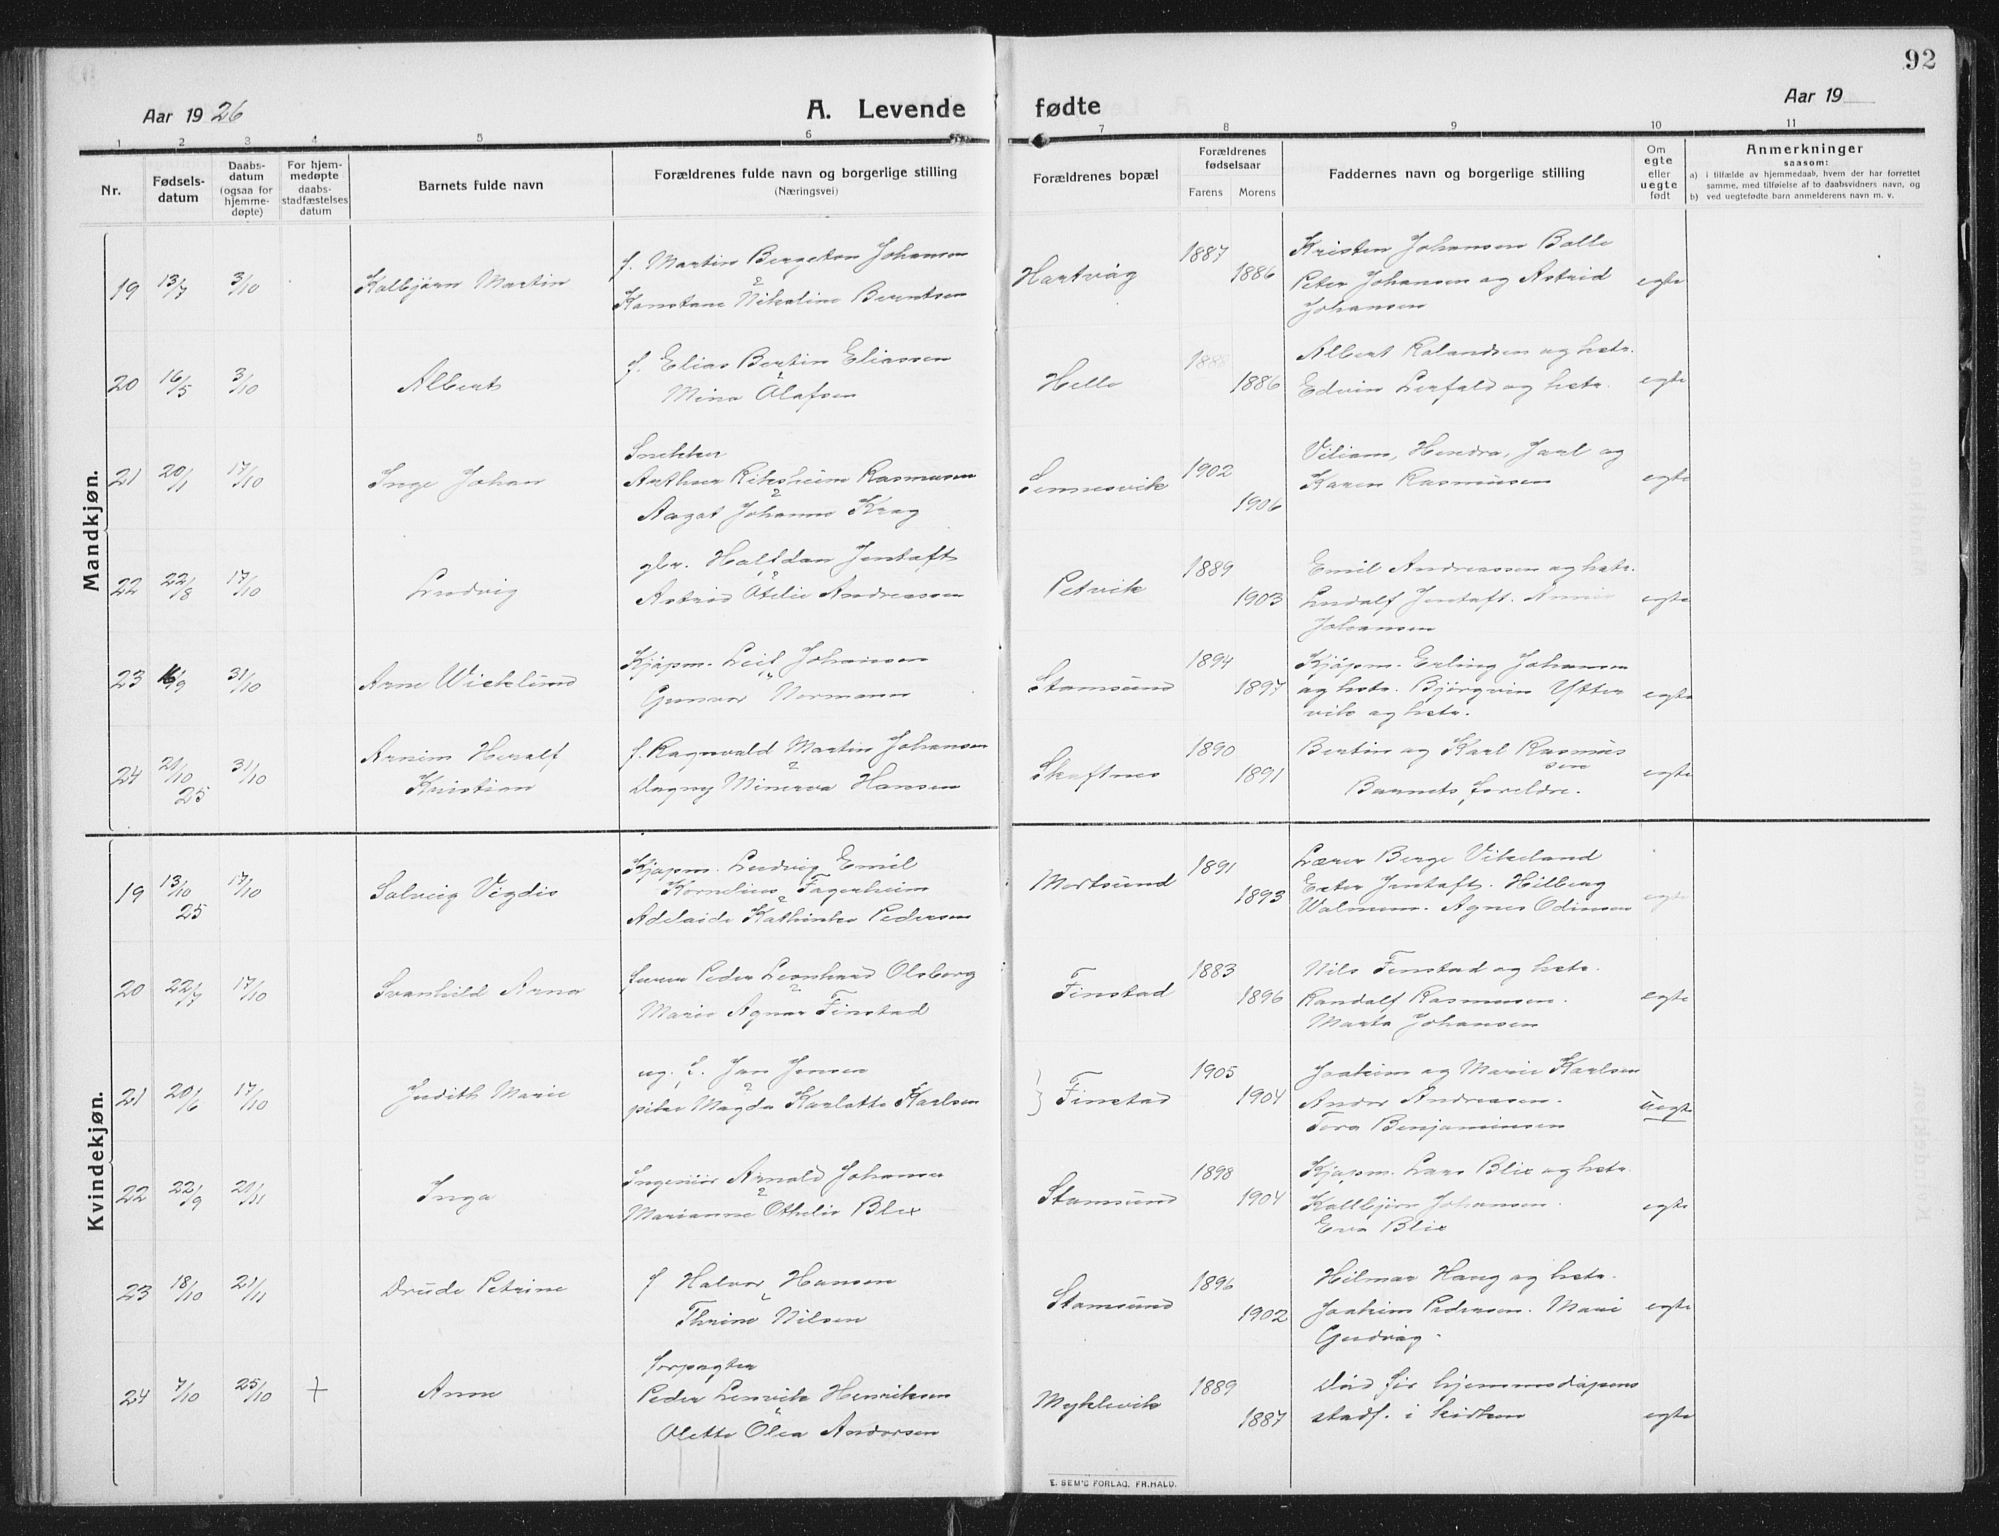 92
Aar 1926
A. Levende fødte
Aar 19
1 2 3 4 5 6 7 8 9 10 11
Nr.
Fødsels-
datum
Daabs-
datum
(ogsaa for
hjemme-
døpte)
For hjem-
medøpte
daabs-
stadfæstelses
datum
Barnets fulde navn
Forældrenes fulde navn og borgerlige stilling
(Næringsvei)
Forældrenes bopæl
Forældrenes
fødselsaar
Farens Morens
Faddernes navn og borgerlige stilling
Om
egte
eller
uegte
født
Anmerkninger
saasom:
a) i tilfælde av hjemmedaab, hvem der har forrettet
samme, med tilføielse af to daabsvidners navn, og
b) ved uegtefødte barn anmelderens navn m. v.
Mandkjøn.
19 13/7 3/10 Kolbjørn Martin
f. Martin Bergeton Johansen
Konstanse Nikoline Berntsen
Hartvåg 1887 1886
Kristen Johansen Balle
Peter Johansen og Astrid
Johansen
egte
20 16/5 3/10 Albert
f. Elias Bertin Eliassen
Mina Olafsen
Helle 1888 1886
Albert Rolandsen og hstr.
Edvin Lerfald og hstr.
egte
21 20/1 17/10 Inge Johan
Snekker
Arthur Riksheim Rasmusen
Aagot Johanne Krog
Sennesvik 1902 1906
Viliam, Hendra, Jarl og
Karen Rasmusen
egte
22 22/8 17/10 Ludvig
gbr. Halfdan Jentoft
Astrid Otelie Andreassen
Petvik 1889 1903
Emil Andreassen og hstr.
Ludolf Jentoft. Annie
Johansen
egte
23 16/9 31/10 Arne Wicklund
Kjøpm. Leif Johansen
Gunvor Normann
Stamsund 1894 1897
Kjøpm. Erling Johansen
og hstr. Bjørgvin Ytter
vik og hstr.
egte
24 21/10 25 31/10 Arnim Heralf
Kristian
f. Ragnvald Martin Johansen
Dagny Minerva Hansen
Skaftnes 1890 1891
Bertin og Karl Rasmus
sen
Barnets foreldre.
egte
Kvindekjøn.
19 13/10 25 17/10 Solveig Vigdis
Kjøpm. Ludvig Emil
Kornelius Fagerheim
Adelaide Kathinka Pedersen
Mortsund 1891 1893
Lærer Berge Vikeland
Ester Jentoft. Hilberg
Walmum. Agnes Odinsen
egte
20 22/7 17/10 Svanhild Arna
furer Peder Leonhard Olsborg
Marie Agnor Finstad
Finstad 1883 1896
Nils Finstad og hstr.
Randolf Rasmussen.
Marta Johansen
egte
21 20/6 17/10 Judith Marie
ug. f. Jan Jensen
pike Magda Karlotte Karlsen
Finstad 1905 1904
Joakim og Marie Karlsen
Andor Andreasen.
Tora Benjaminsen
uegte
22 22/9 21/11 Inga
Ingeniør Arnold Johansen
Marianne Othelie Blix
Stamsund 1898 1904
Kjøpm. Lars Blix og hstr.
Kolbjørn Johansen.
Eva Blix
egte
23 18/10 21/11 Drude Petrine
f Halvor Hansen
Thrine Nilsen
Stamsund 1896 1902
Hilmar Haug og hstr.
Joakim Pedersen. Marie
Gudvåg.
egte
24 7/10 25/10 + Anne
Forpagter
Peder Lenvik Henriksen
Olette Olea Andersen
Myklevik 1889 1887
Død før hjemmedåpens
stadf. i kirken
egte
E. SEM'S FORLAG, FR.HALD.